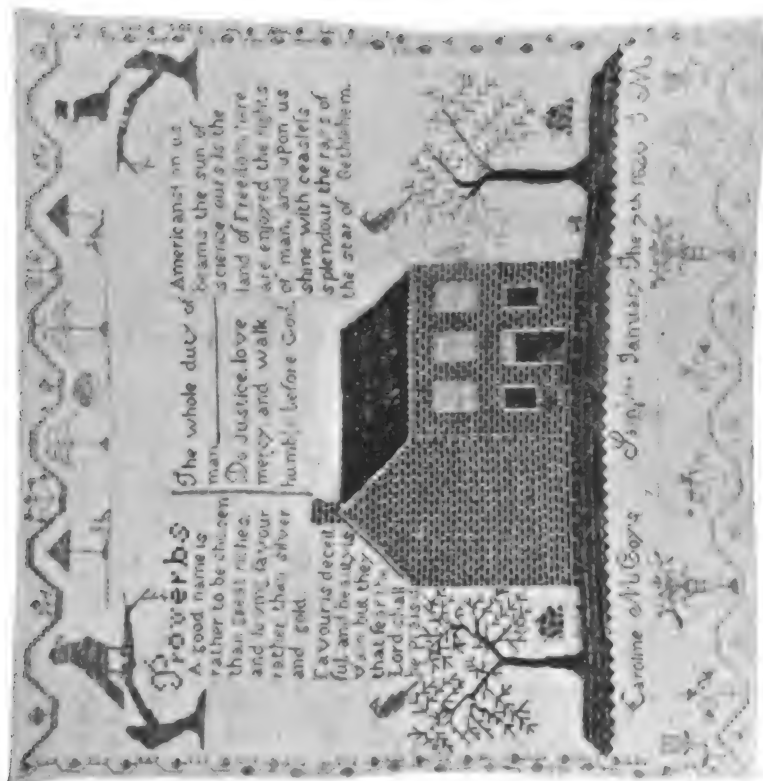 Proverbs
A good name is
rather to be chosen
than great riches,
and loving favour
rather than silver
and gold.
Favour is deceit
ful, and beauty is
vain but they
that fear the
Lord shall
be praised
The whole duty of
man
Do Justice, love
mercy and walk
humbly before God.
Americans! on us
beams the sun of
science ours is the
land of Freedom here
are enjoyed the rights
of man, and upon us
shine with ceasless
splendour the rays of
the star of Bethlehem.
Caroline January The 7th